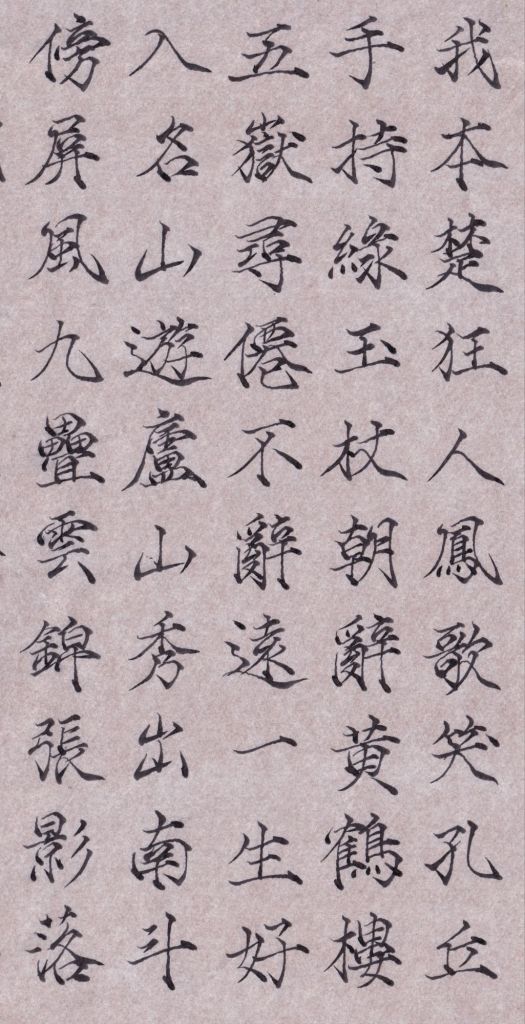 我本楚狂人鳳歌笑孔丘
手持綠玉杖朝辭黃鶴樓
五嶽尋僊不辭遠一生好
入名山遊廬山秀出南斗
傍屏風九疊雲錦張影落